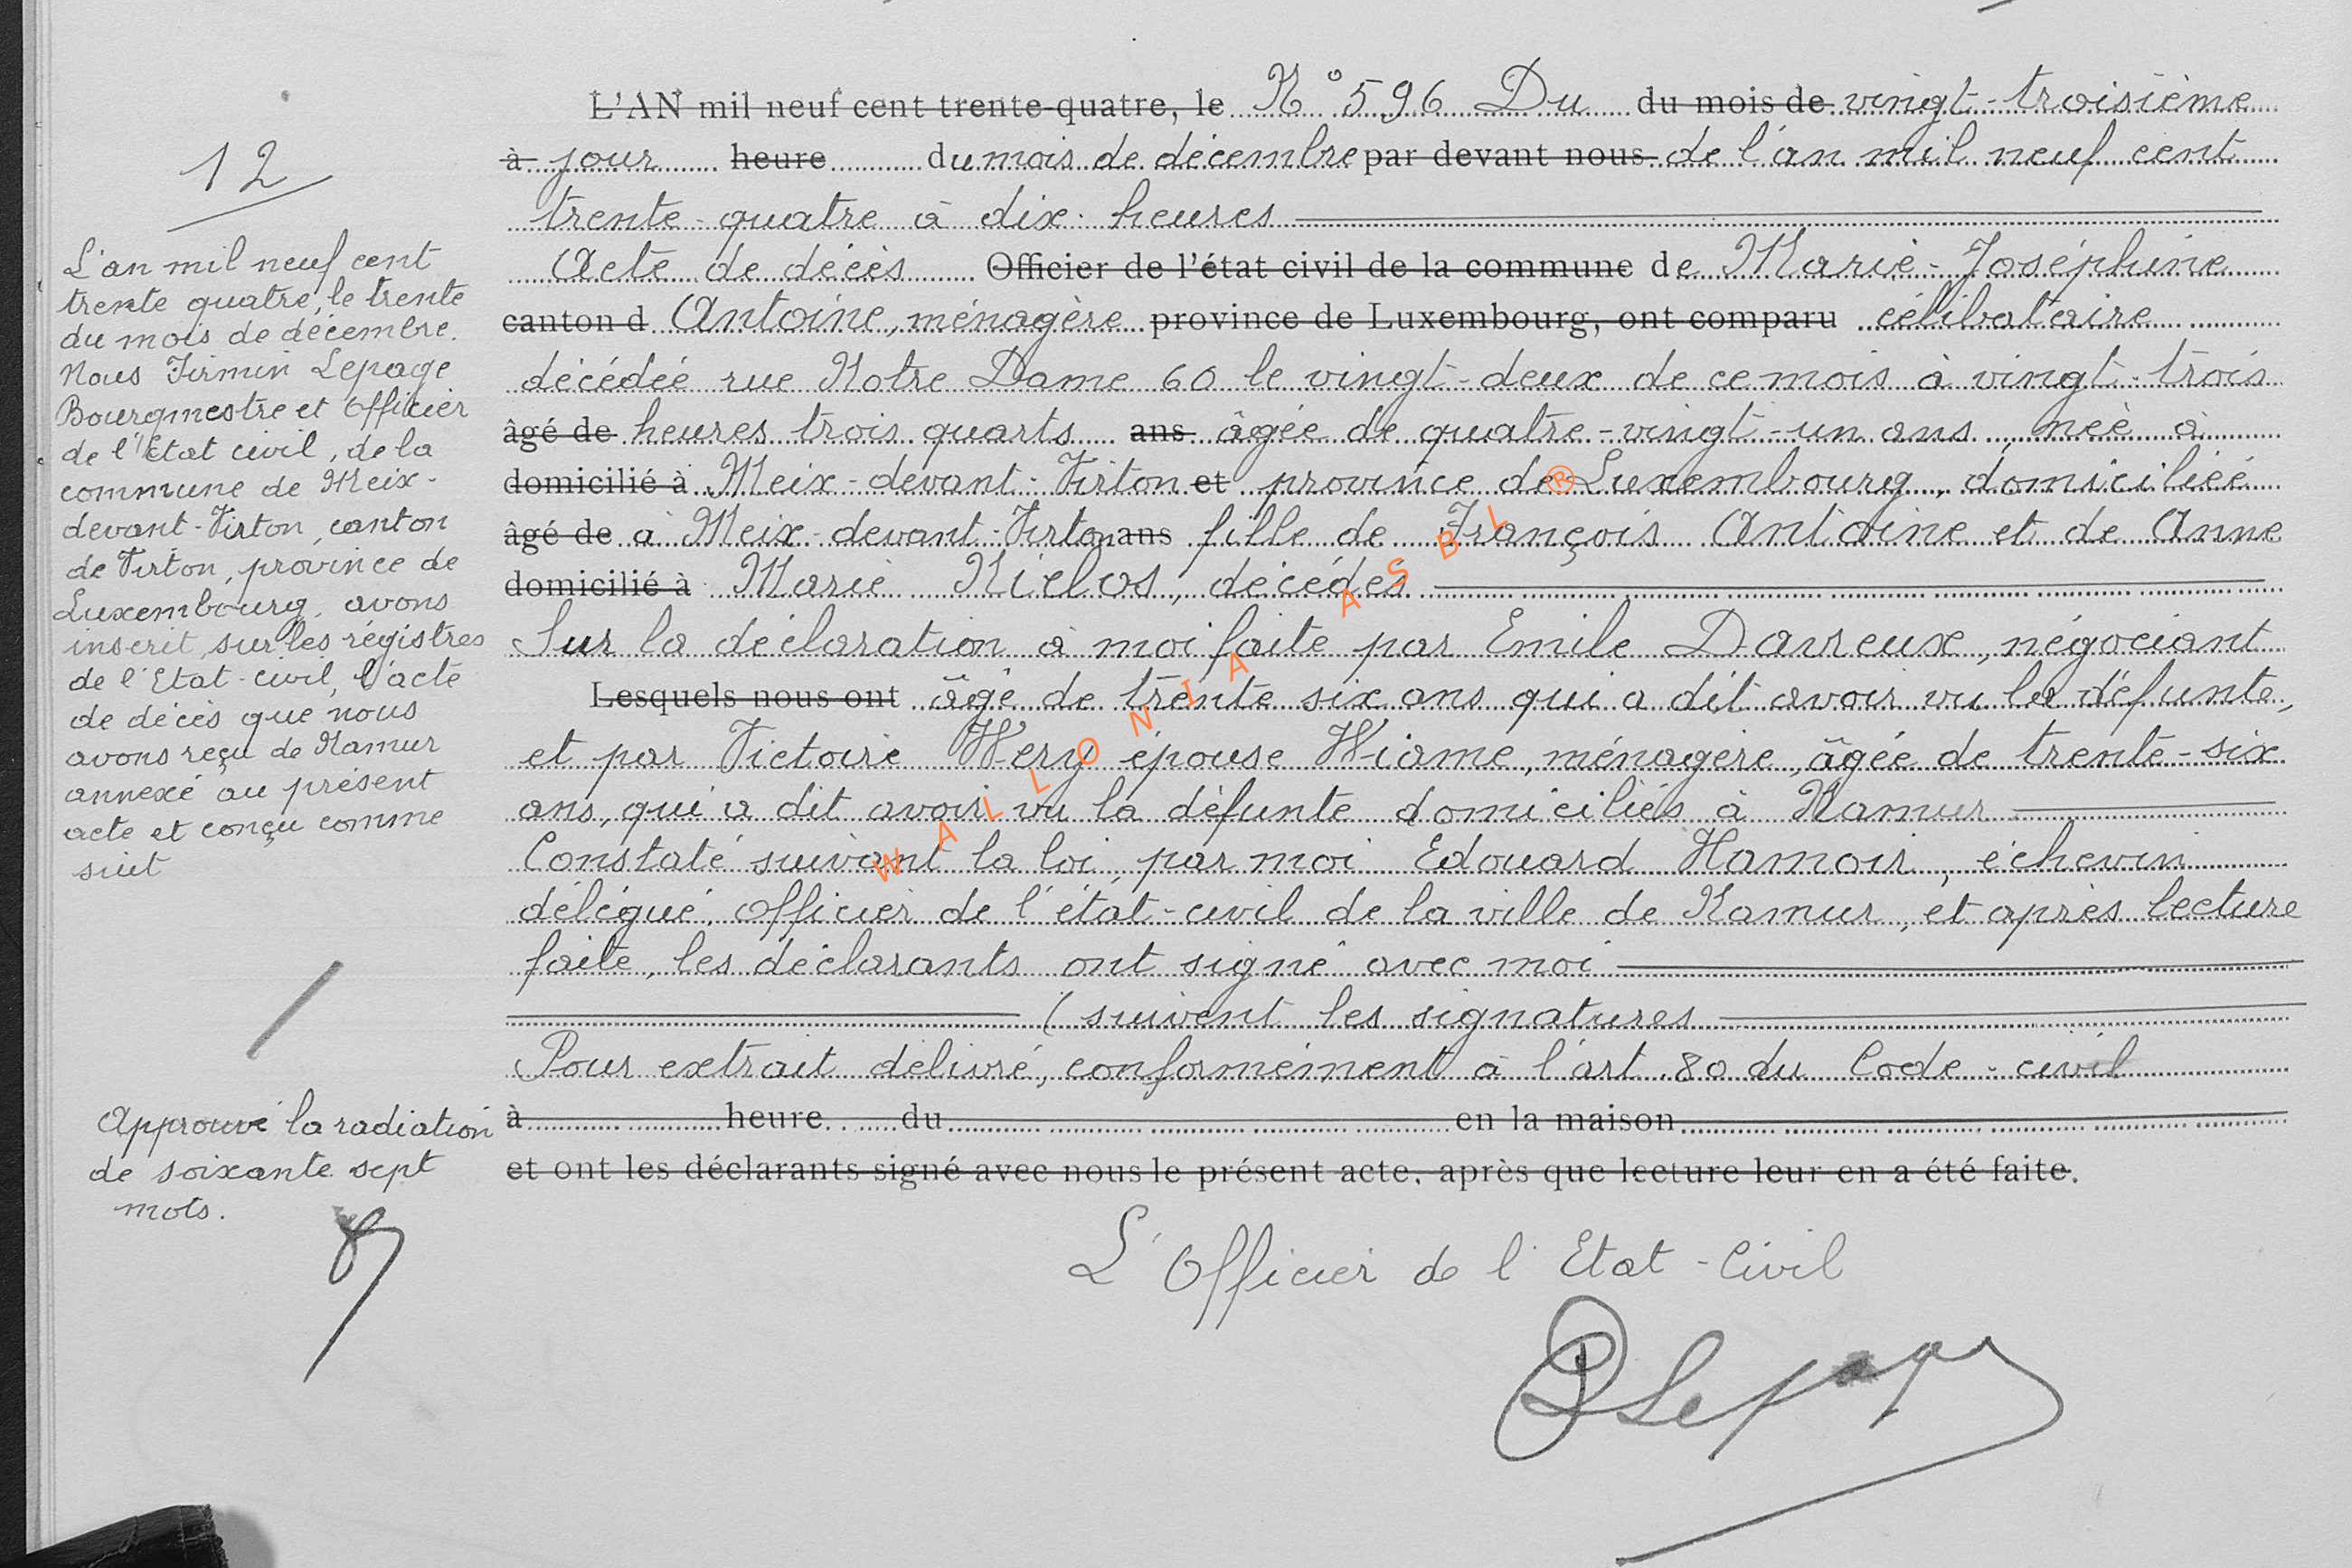 12
L'an mil neuf cent
trente quatre, le trente
du mois de décembre.
Nous Firmin Lepage
Bourgmestre et Officier
de l'Etat civil, de la
commune de Meix-
devant-Virton, canton
de Virton, province de
Luxembourg, avons
inscrit, sur les régistres
de l'Etat-civil, l'acte
de décès que nous
avons reçu de Namur
annexé au présent
acte et conçu comme
suit
Approuvé la radiation
de soixante sept
mots.
L'AN mil neuf cent trente-quatre, le N° 596 Du du mois de vingt-troisième
à jour heure du mois de décembre par devant nous de l'an mil neuf cent
trente-quatre à dix heures
Acte de décès Officier de l'état civil de la commune de Marie-Joséphine
canton d Antoine, ménagère province de Luxembourg, ont comparu célibataire
décédée rue Notre Dame 60 le vingt-deux de ce mois à vingt-trois
âgé de heures trois quarts ans âgée de quatre-vingt-un ans, née à
domicilié à Meix-devant-Virton et province de Luxembourg, domiciliée
âgé de à Meix-devant-Virton ans fille de François Antoine et de Anne
domicilié à Marie Niclos, décédés
Sur la déclaration à moi faite par Emile Davreux, négociant
Lesquels nous ont âgé de trente six ans qui a dit avoir vu la défunte,
et par Victoire Wery épouse Wiame, ménagère, âgée de trente-six
ans, qui a dit avoir vu la défunte domiciliés à Namur
Constaté suivant la loi, par moi Edouard Hamoir, échevin
délégué, officier de l'état-civil de la ville de Namur, et après lecture
faite, les déclarants ont signé avec moi
(suivent les signatures
Pour extrait délivré, conformément à l'art. 80 du Code-civil
à heure du en la maison
et ont les déclarants signé avec nous le présent acte, après que lecture leur en a été faite.
L'Officier de l'Etat-Civil
Lepage
WALLONIA ASBL ®